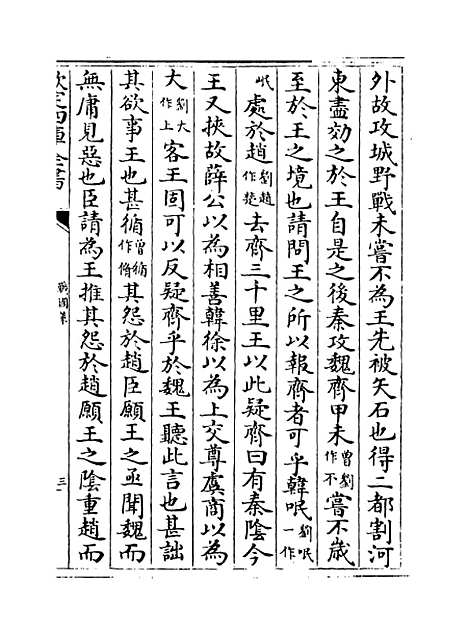 外故攻城野戰未嘗不為王先被矢石也得二都割河
東盡効之於王自是之後秦攻魏齊甲未曾劉作不嘗不嵗
至於王之境也請問王之所以報齊者可乎韓呡劉呡一作
岷處於趙劉趙作楚去齊三十里王以此疑齊曰有秦陰今
王又挾故薛公以為相善韓徐以為上交尊虞商以為
大劉大作上客王固可以反疑齊乎於魏王聽此言也甚詘
其欲事王也甚循曾循作脩其怨於趙臣願王之亟聞魏而
無庸見惡也臣請為王推其怨於趙願王之陰重趙而
欽定四庫全書
戰國策
三